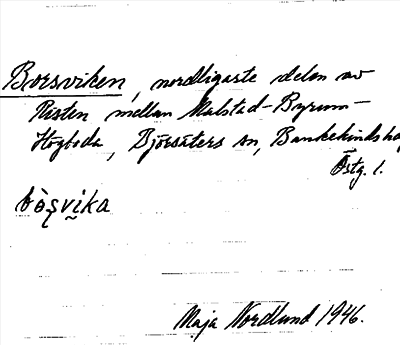 Borsviken, nordligaste delen av
Risten mellan Malstad-Byrum-
Högboda, Björsäters sn, Bankekinds ha
Östg. l.
bòs̨vika
Maja Nordlund 1946.